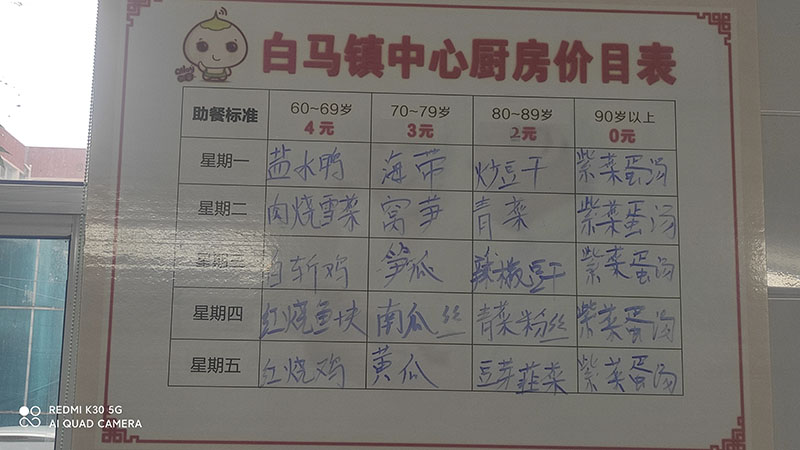 白马镇中心厨房价目表
助餐标准 60~69岁 4元 70~79岁 3元 80~89岁 2元 90岁以上 0元
星期一 盐水鸭 海带 炒豆干 紫菜蛋汤
星期二 肉烧雪菜 窝笋 青菜 紫菜蛋汤
星期三 白斩鸡 笋瓜 辣椒豆干 紫菜蛋汤
星期四 红烧鱼块 南瓜丝 青菜粉丝 紫菜蛋汤
星期五 红烧鸡 黄瓜 豆芽韭菜 紫菜蛋汤
REDMI K30 5G
AI QUAD CAMERA